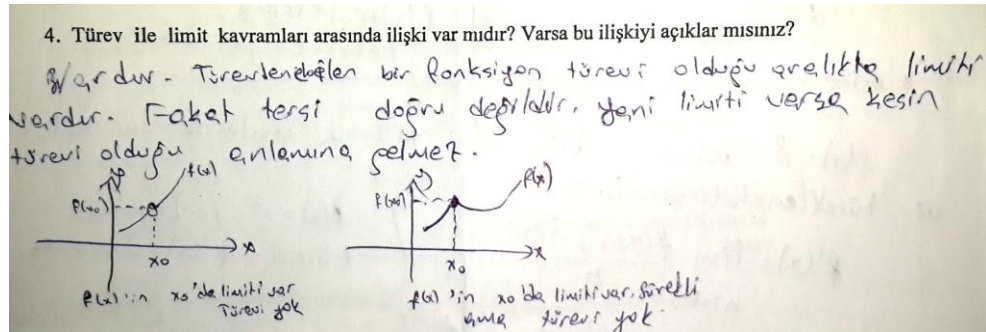 4. Türev ile limit kavramları arasında ilişki var mıdır? Varsa bu ilişkiyi açıklar mısınız?
Vardır. Türevlenebilen bir fonksiyon türevi olduğu aralıkta limiti
vardır. Fakat tersi doğru değildir. Yani limiti varsa kesin
türevi olduğu anlamına gelmez.
y f(x)
f(x₀)
x
x₀
f(x)'in x₀'da limiti var
Türevi yok
y f(x)
f(x₀)
x
x₀
f(x)'in x₀'da limiti var, sürekli
ama türevi yok.